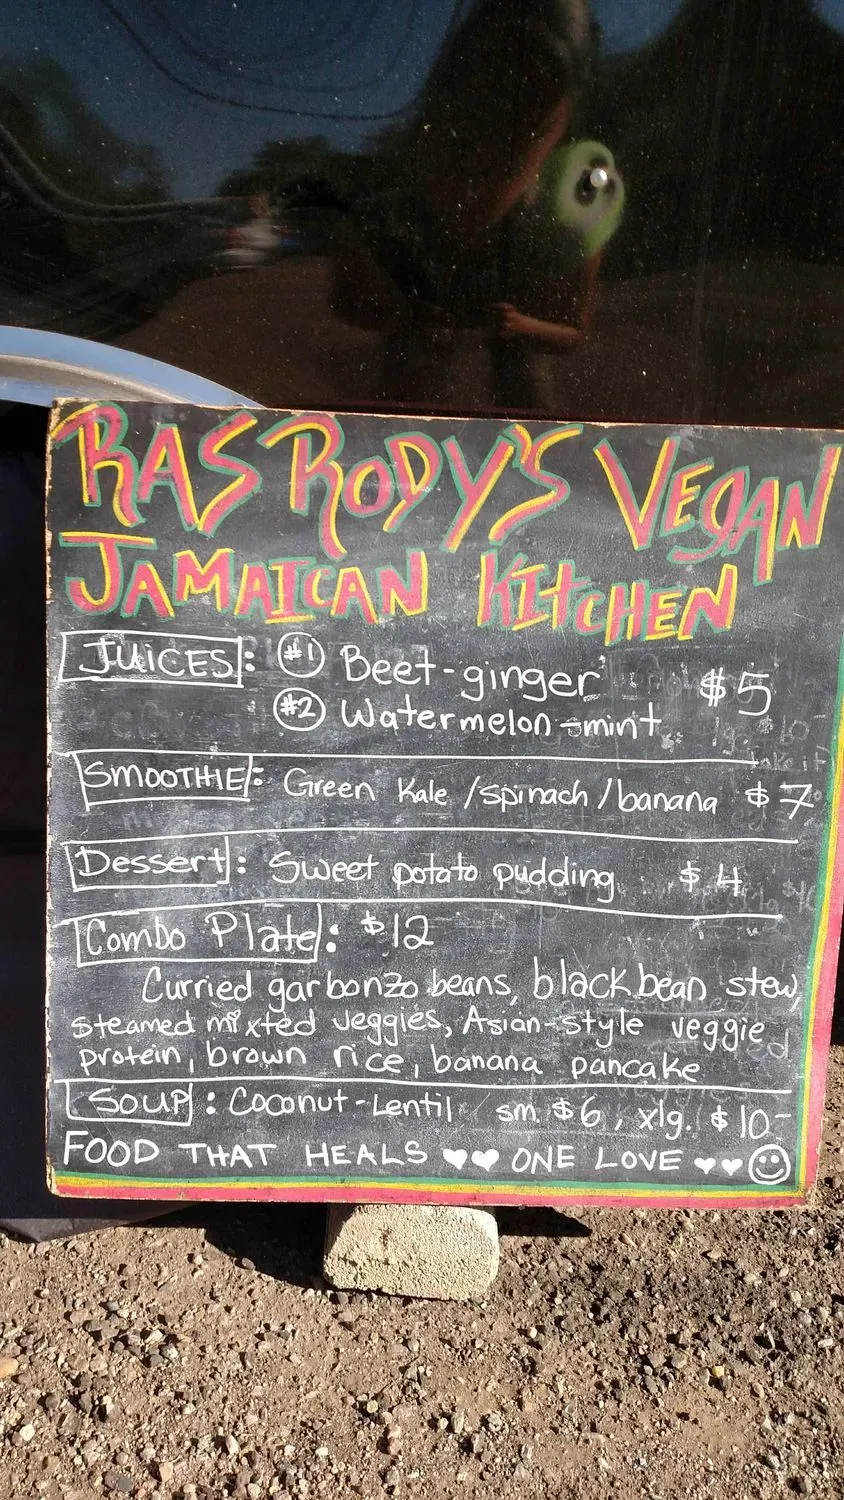 RAS RODY'S VEGAN
JAMAICAN KITCHEN
JUICES: #1 Beet-ginger $5
#2 Watermelon-mint
SMOOTHIE: Green Kale/spinach/banana $7
Dessert: Sweet potato pudding $4
Combo Plate: $12
Curried garbonzo beans, black bean stew,
steamed mixted veggies, Asian-style veggie
protein, brown rice, banana pancake
SOUP: Coconut-Lentil sm. $6, xlg. $10-
FOOD THAT HEALS ♥♥ ONE LOVE ♥♥☺